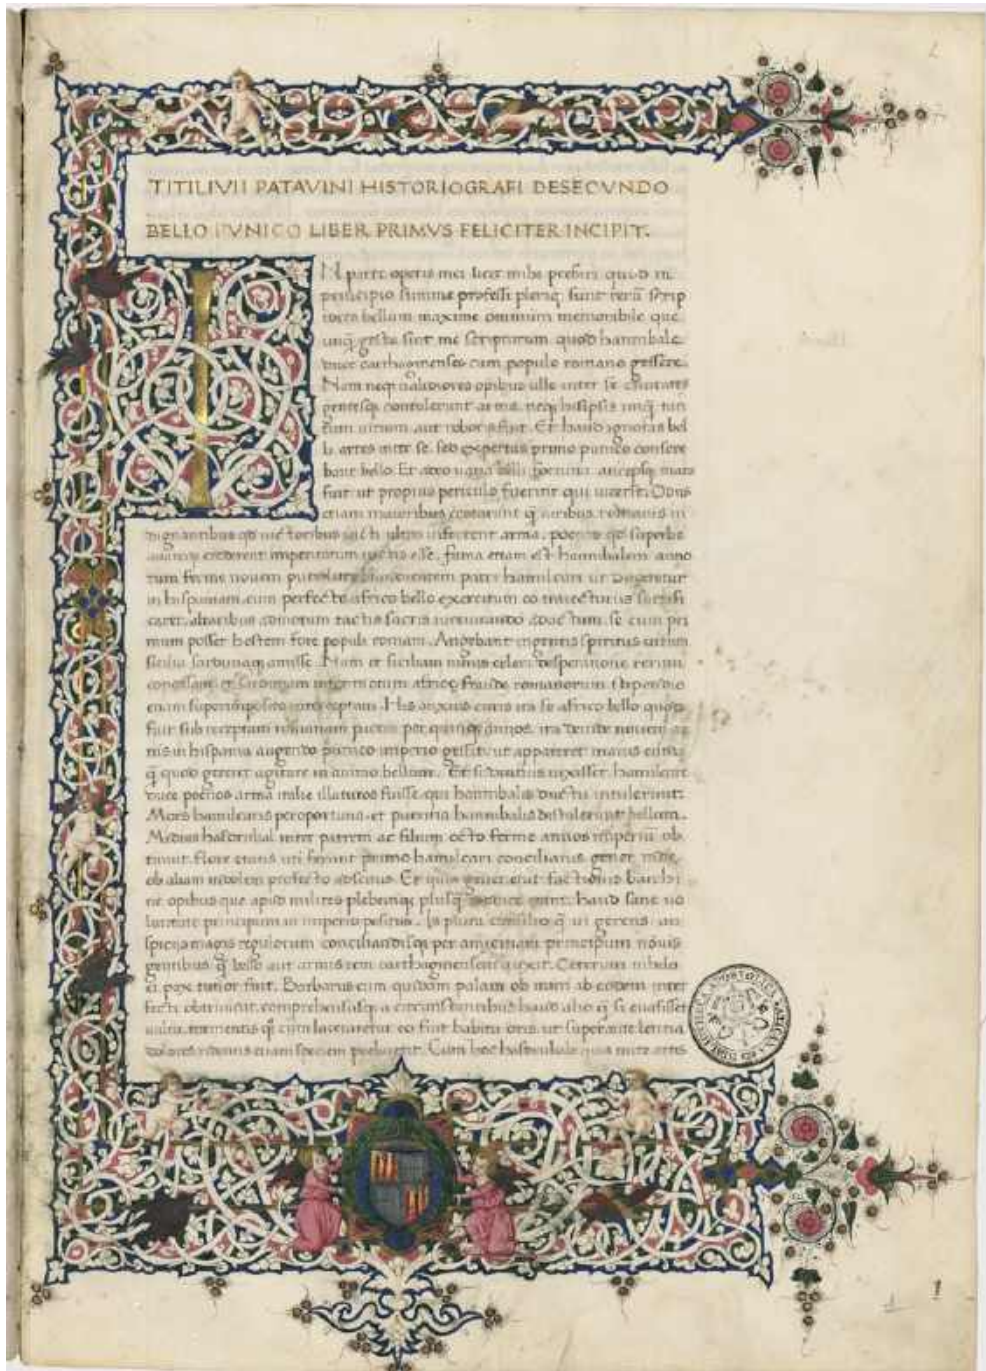 TITI LIVII PATAVINI HISTORIOGRAFI DE SECVNDO
BELLO PVNICO LIBER PRIMVS FELICITER INCIPIT.
IN parte operis mei licet mihi prefari quod in
principio summe professi pleriq; sunt rerū scrip
tores bellum maxime omnium memorabile que
unq̃ gesta sint me scripturum. quod hannibale
duce carthaginenses cum populo romano gessere.
Nam neq; ualidiores opibus ulle inter se ciuitates
gentesq; contulerunt arma. neq; his ipsis unq̃ tan
tum uirium aut roboris fuit. Et haud ignotas bel
li artes inter se. sed expertas primo punico consere
bant bello. Et adeo uaria belli fortuna. ancepsq; mars
fuit ut propius periculo fuerint qui
etiam maioribus certarunt q̃ uiribus. romanis in
dignantibus qd uictoribus uicti ultro inferrent arma. poenis qd superbe
auareq; crederent imperitatum uictis esse. fama etiam est hannibalem anno
rum ferme nouem pueriliter blandientem patri hamilcari ut duceretur
in hispaniam. cum perfecto africo bello exercitum eo traiecturus sacrifi
caret. altaribus admotum tactis sacris iureiurando adactum. se cum pri
mum posset hostem fore populi romani. Angebant ingentis spiritus uirum
sicilia sardiniaq; amisse. Nam et siciliam nimis celeri desperatione rerum
concessam. et sardiniam inter motum africe fraude romanorum stipendio
etiam superimposito interceptam. His anxius curis ita se africo bello quod
fuit sub recentem romanam pacem per quinq; annos. ita deinde nouem an
nis in hispania augendo punico imperio gessit. ut appareret maius eum
q̃ quod gereret agitare in animo bellum. Et si diutius uixisset. hamilcare
duce poenos arma italie illaturos fuisse. qui hannibalis ductu intulerunt.
Mors hamilcaris peroportuna. et pueritia hannibalis distulerunt bellum.
Medius hasdrubal inter patrem ac filium octo ferme annos imperiū ob
tinuit. flore etatis uti ferunt primo hamilcari conciliatus gener inde
ob aliam indolem profecto adscitus. Et quia gener erat factionis barchi
ne opibus que apud milites plebemq; plusq̃ modice erant. haud sane uo
luntate principum in imperio positus. Is plura consilio q̃ ui gerens. au
spiciis magis regulorum conciliandisq; per amicitiam principum nouis
gentibus q̃ bello aut armis rem carthaginensem auxit. Ceterum nihilo
ei pax tutior fuit. Barbarus eum quidam palam ob iram ab eodem inter
fecti obtruncat. comprehensusq; a circumstantibus haud alio q̃ si euasisset
uultu. tormentis q̃ cum laceraretur eo fuit habitu oris. ut superante letitia
dolores ridentis etiam speciem prebuerit. Cum hoc hasdrubale quia mire artis